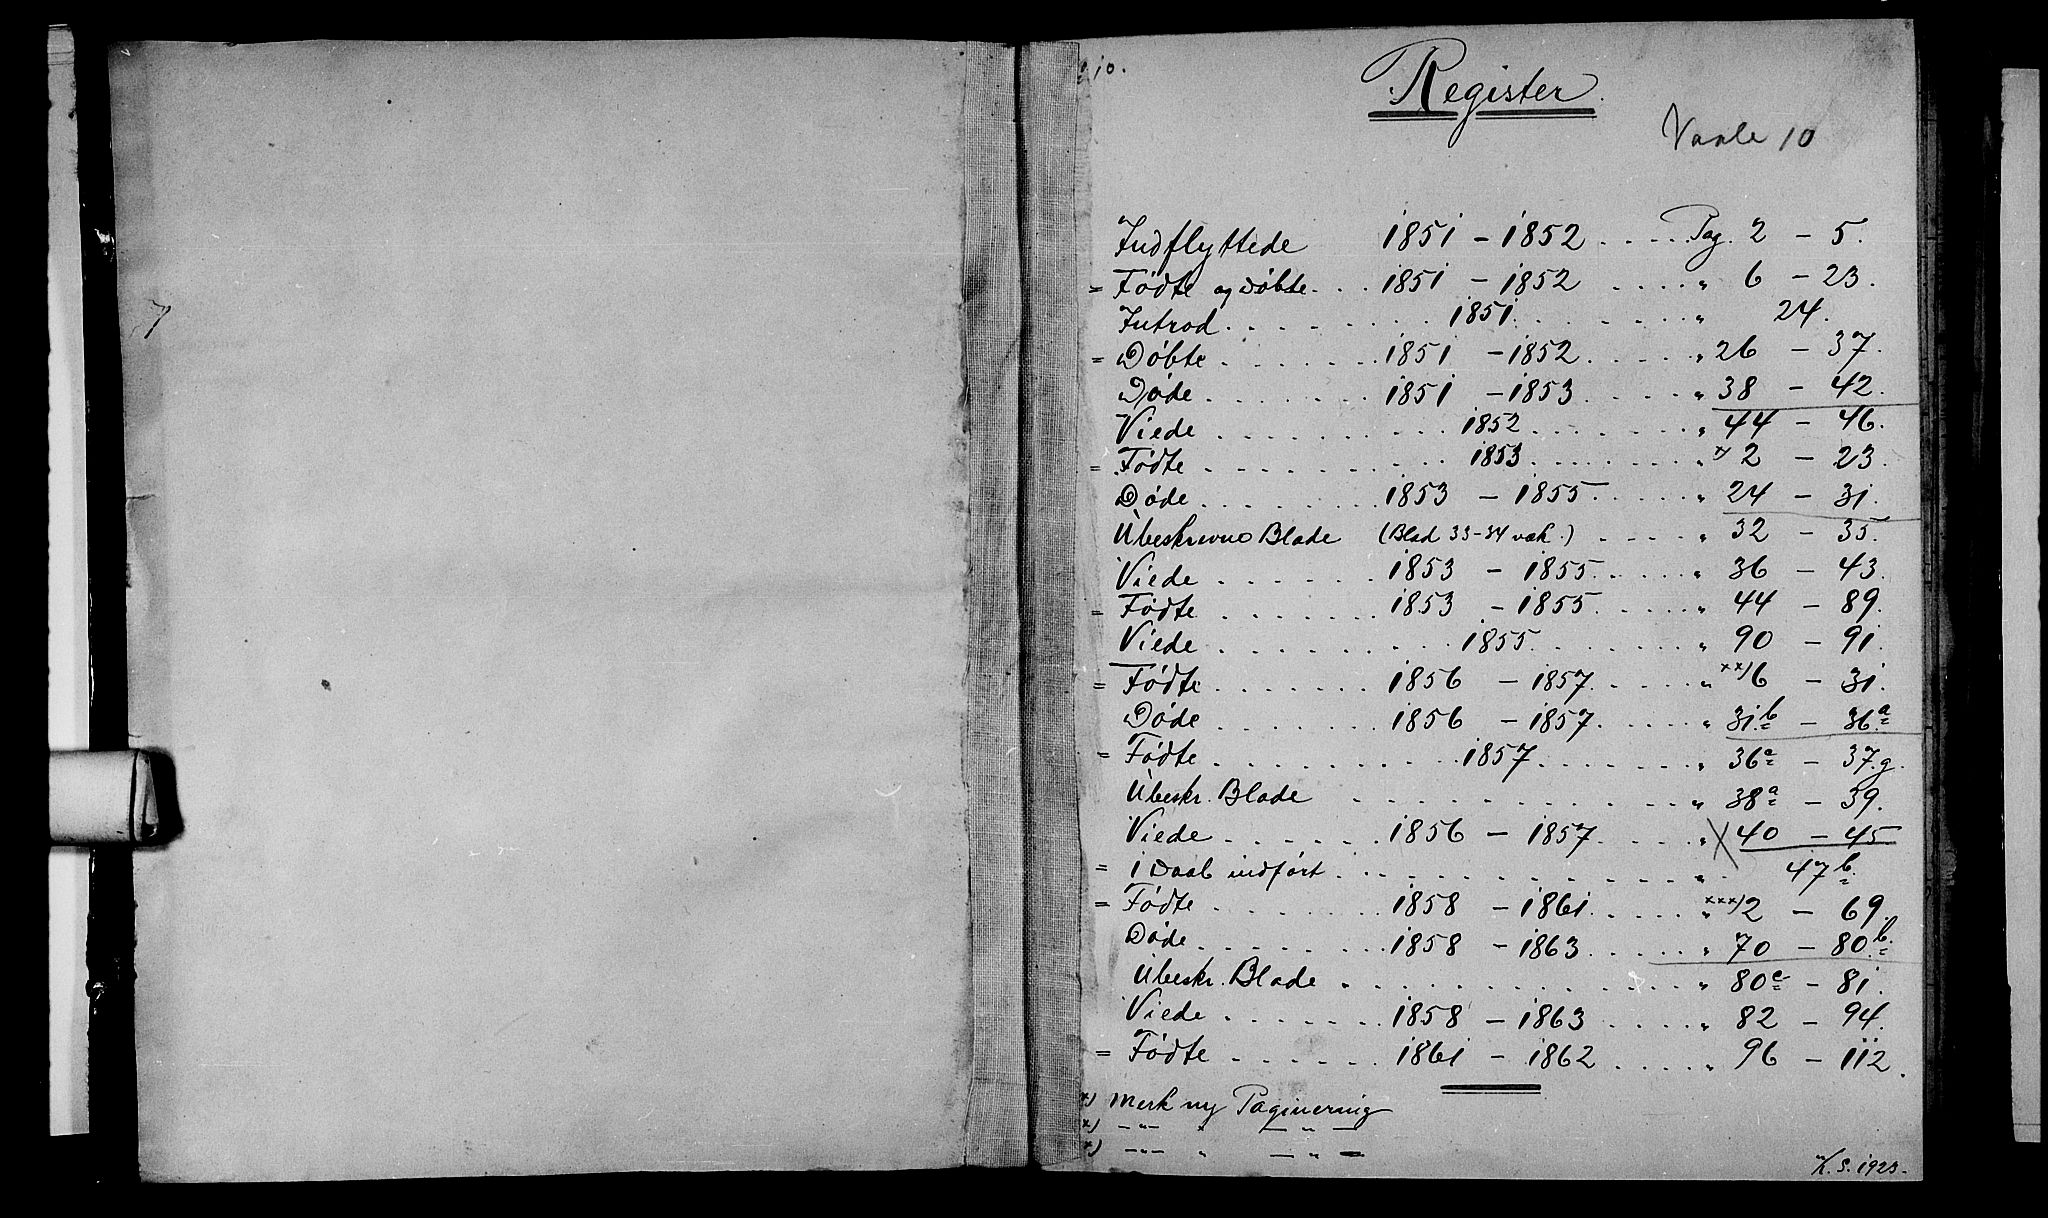 10.
Register.
Vaale 10
Indflyttede 1851 - 1852 . . . . Pag. 2 - 5.
= Fødte og døbte. . . 1851 - 1852 . . . . " 6 - 23.
Introd. . . . . . . . . 1851. . . . . . . . " 24.
= Døbte . . . . . . 1851 - 1852. . . . . " 26 - 37.
Døde . . . . . . . 1851 - 1853. . . . . " 38 - 42.
Viede . . . . . . . . . 1852 . . . . . . . " 44 - 46.
= Fødte . . . . . . . . . 1853 . . . . . . . " x) 2 - 23.
Døde . . . . . . . . 1853 - 1855 . . . . . " 24 - 31.
Ubeskrevne Blade (Blad 33-34 vak.) . . . . " 32 - 35.
Viede . . . . . . 1853 - 1855 . . . . . " 36 - 43.
= Fødte . . . . . . . 1853 - 1855 . . . . . " 44 - 89.
Viede . . . . . . . . . 1855. . . . . . . . " 90 - 91.
= Fødte . . . . . . . 1856 - 1857. . . . . " xx) 6 - 31.
Døde . . . . . . 1856 - 1857. . . . . " 31.b - 36.a
= Fødte . . . . . . . . . . 1857. . . . . . . " 36a - 37.g.
Ubeskr. Blade . . . . . . . . . . . . . " 38a - 39.
Viede . . . . . . 1856 - 1857. . . . . " 40 - 45
= i Daab indført . . . . . . . . . . . . . " 47b.
= Fødte . . . . . . . 1858 - 1861. . . . . " xxx) 2 - 69.
Døde . . . . . . . 1858 - 1863. . . . . " 70 - 80.b.
Ubeskr. Blade . . . . . . . . . . . . . " 80c - 81.
Viede . . . . . . 1858 - 1863 . . . . " 82 - 94.
= Fødte . . . . . . 1861 - 1862 . . . . . " 96 - 112.
x) Merk ny Paginering
x) — " — " — " —
x) — " — " — " —
K. S. 1923.